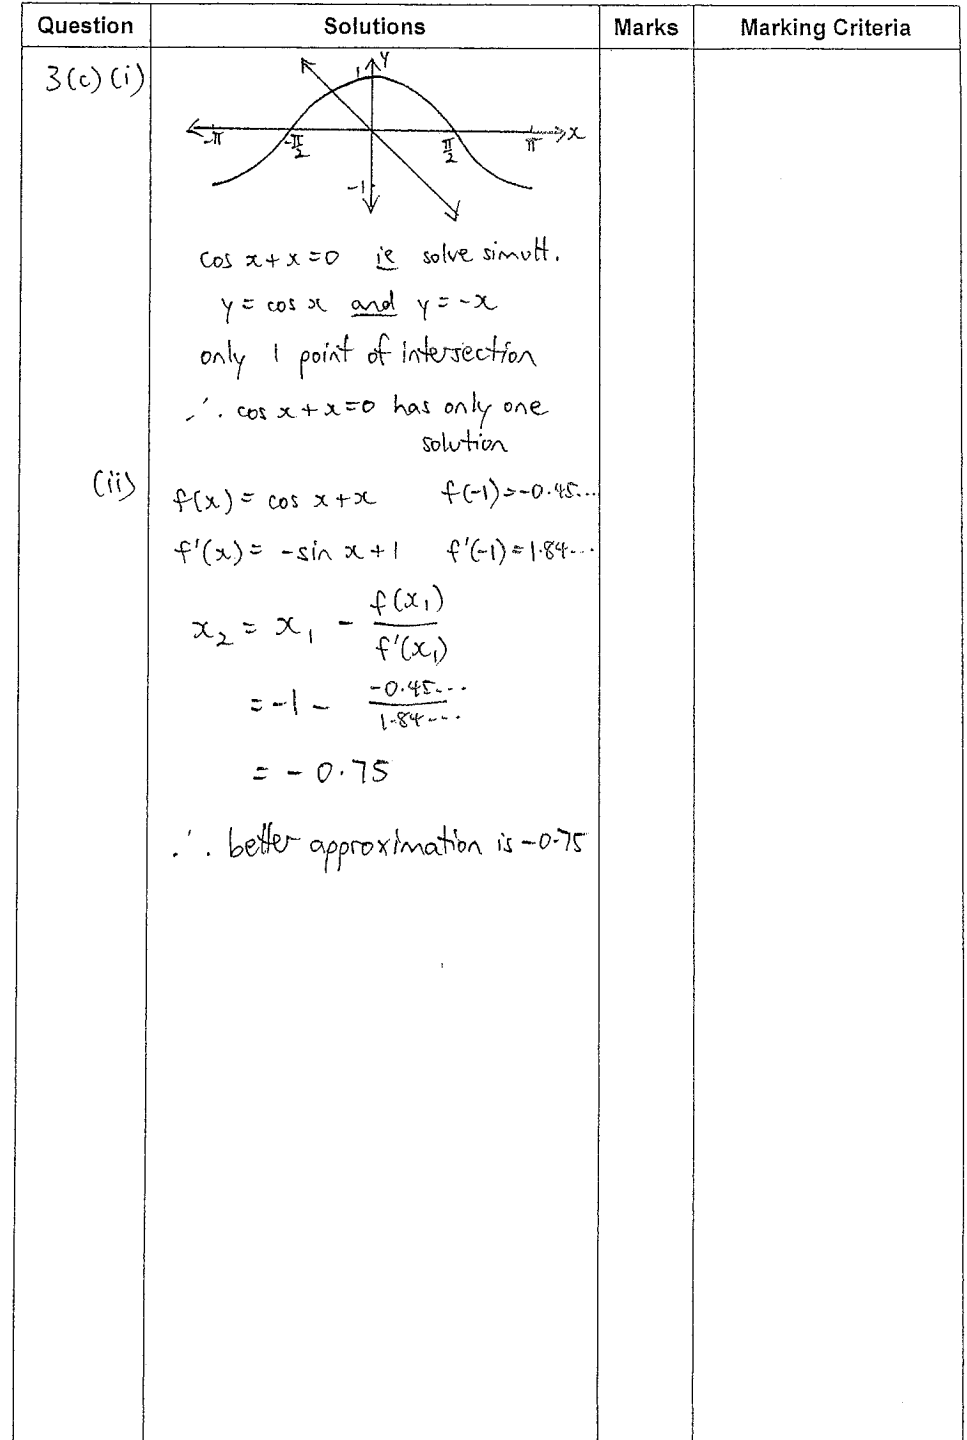 Question Solutions Marks Marking Criteria
3(c)(i)
1 y
-π -π/2 π/2 π x
-1
cos x + x = 0 ie solve simult.
y = cos x and y = -x
only 1 point of intersection
∴ cos x + x = 0 has only one
solution
(ii)
f(x) = cos x + x f(-1) = -0.45...
f'(x) = -sin x + 1 f'(-1) = 1.84...
x₂ = x₁ - f(x₁)/f'(x₁)
= -1 - -0.45.../1.84...
= -0.75
∴ better approximation is -0.75